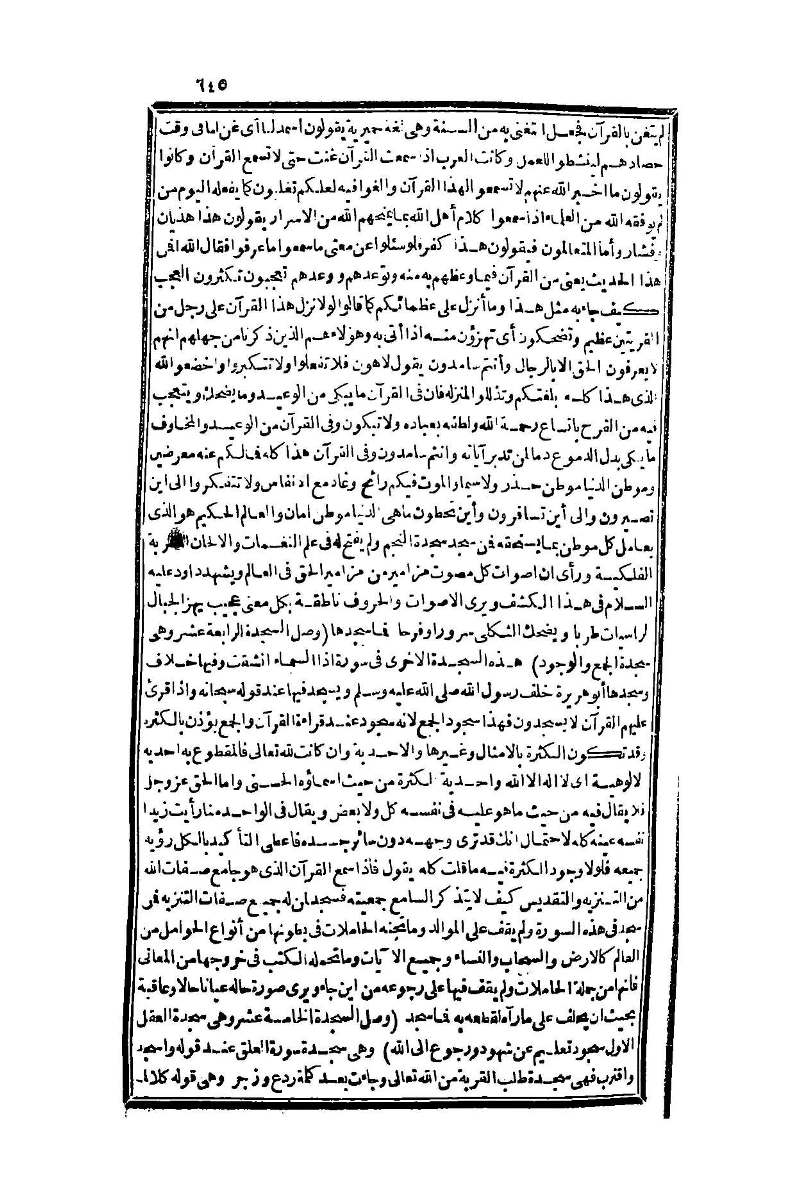 ٦٤٥
لم يتغن بالقرآن فجعل التغنى به من السنة وهى لغة حميرية يقولون اسمد لنا أى غن لنا فى وقت
حصادهم لينشطوا للعمل وكانت العرب اذا سمعت القرآن غنت حتى لا تسمع القرآن وكانوا
يقولون ما أخبر الله عنهم لا تسمعوا لهذا القرآن والغوا فيه لعلكم تغلبون كما يفعله اليوم من
لم يوفقه الله من العلماء اذا سمعوا كلام أهل الله بما يمنحهم الله من الاسرار يقولون هذا هذيان
وفشار وأما المتعالمون فيقولون هذا كفر ولو سئلوا عن معنى ما سمعوا ما عرفوا فقال الله أفمن
هذا الحديث يعنى من القرآن فيما وعظهم به منه وتوعدهم ووعدهم تعجبون تكثرون العجب
كيف جاء به مثل هذا وما أنزل على عظمائكم كما قالوا لولا نزل هذا القرآن على رجل من
القريتين عظيم وتضحكون أى تهزؤن منه اذا أتى به وهؤلاء هم الذين ذكرنا من جهلهم انهم
لا يعرفون الحق الا بالرجال وأنتم سامدون يقول لاهون فلا تفعلوا ولا تتكبروا واخضعوا لله
الذى هذا كلامه بلغتكم وتذللوا لمنزله فان فى القرآن ما يبكى من الوعيد وما يضحك ويتعجب
فيه من الفرح باتساع رحمة الله ولطفه بعباده ولا تبكون وفى القرآن من الوعيد والمخاوف
ما يبكى بدل الدموع دما لمن تدبر آياته وأنتم سامدون وفى القرآن هذا كله فما لكم عنه معرضين
وموطن الدنيا موطن حذر ولا سيما والموت فيكم رائح وغاد مع الانفاس ولا تتفكروا الى أين
تصيرون والى أين تسافرون وأين تحطون ماهى الدنيا موطن امان والعالم الحكيم هو الذى
يعامل كل موطن بما يستحقه فمن سجد سجدة النجم ولم يفتح له فى علم النغمات والالحان
الفلكية ورأى ان اصوات كل مصوت مزامير من مزامير الحق فى العالم ويشهد داود عليه
السلام فى هذا الكشف ويرى الاصوات والحروف ناطقة بكل معنى عجيب يهز الجبال
الراسيات طربا ويضحك الثكلى سرورا وفرحا فما سجدها (وصل السجدة الرابعة عشر وهى
سجدة الجمع والوجود) هذه السجدة الاخرى فى سورة اذا السماء انشقت وفيها خلاف
وسجدها أبو هريرة خلف رسول الله صلى الله عليه وسلم ويسجد فيها عند قوله سبحانه واذا قرئ
عليهم القرآن لا يسجدون فهذا سجود الجمع لانه سجود عند قراءة القرآن والجمع يؤذن بالكثرة
وقد تكون الكثرة بالامثال وغيرها والاحدية وان كانت لله تعالى فالمقطوع به احدية
الالوهية أى لا اله الا الله واحدية الكثرة من حيث اسماؤه الحسنى واما الحق عز وجل
فلا يقال فيه من حيث ما هو عليه فى نفسه كل ولا بعض ويقال فى الواحد منا رأيت زيدا
نفسه عينه كله لاحتمال انك قد ترى وجهه دون سائر جسده فاعطى التأكيد بالكل رؤية
جميعه فلولا وجود الكثرة فيه ما قلت كله يقول فاذا سمع القرآن الذى هو جامع صفات الله
من التنزيه والتقديس كيف لا يتذكر السامع جمعيته فسجد لمن له جميع صفات التنزيه فمن
سجد فى هذه السورة ولم يقف على الموالد وما تجنه الحاملات فى بطونها من أنواع الحوامل من
العالم كالارض والسحاب والنساء وجميع الآيات وما تحمله الكتب فى خروجها من المعانى
فانها من جملة الحاملات ولم يقف فيها على رجوعه من اين جاء ويرى صورة حاله عيانا حالا وعاقبة
بحيث ان يحلف على مارآه لقطعه به فما سجد (وصل السجدة الخامسة عشر وهى سجدة العقل
الاول سجود تعليم عن شهود ورجوع الى الله) وهى سجدة سورة العلق عند قوله واسجد
واقترب فهى سجدة طلب القربة من الله تعالى وجاءت بعد كلمة ردع وزجر وهى قوله كلا لما